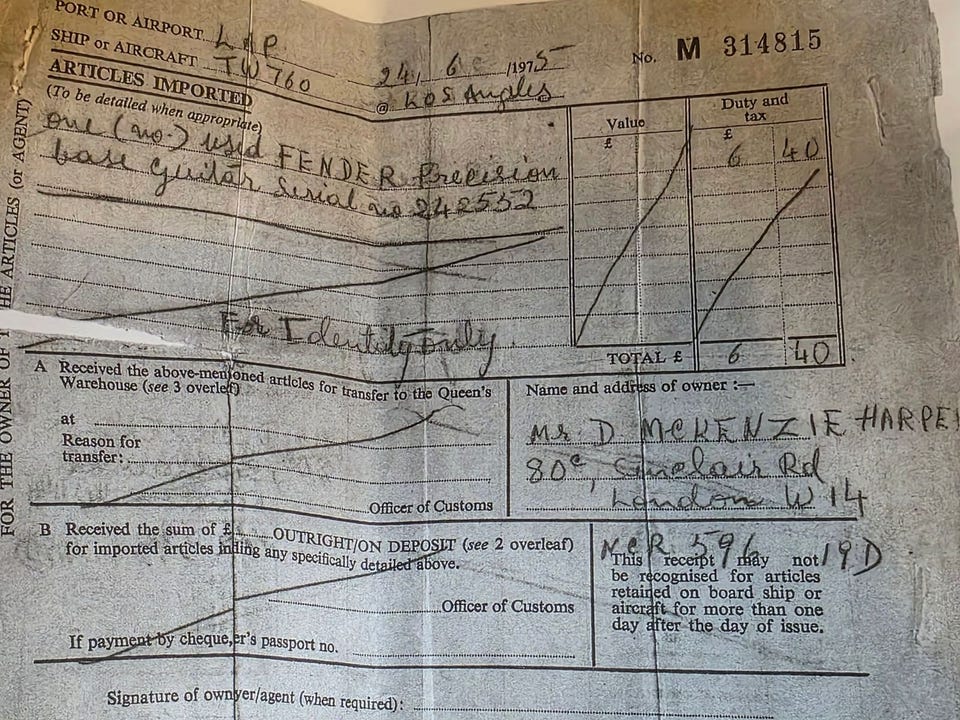 PORT OR AIRPORT LAP
SHIP or AIRCRAFT TW760 24/ 6 /1975 No. M 314815
ARTICLES IMPORTED @ Los Angeles
(To be detailed when appropriate)
Value £
Duty and tax £
one (no.) used FENDER Precision 6 40
base guitar Serial no 242552
For Identity Only
TOTAL £ 6 40
FOR THE OWNER OF THE ARTICLES (or AGENT)
A Received the above-mentioned articles for transfer to the Queen's
Warehouse (see 3 overleaf)
at
Reason for
transfer:
Officer of Customs
Name and address of owner :—
Mr D MCKENZIE HARPE
80c, Sinclair Rd
London W14
B Received the sum of £ OUTRIGHT/ON DEPOSIT (see 2 overleaf)
for imported articles inding any specifically detailed above.
Officer of Customs
If payment by cheque,er's passport no.
NCR 596 19D
This receipt may not
be recognised for articles
retained on board ship or
aircraft for more than one
day after the day of issue.
Signature of ownyer/agent (when required):